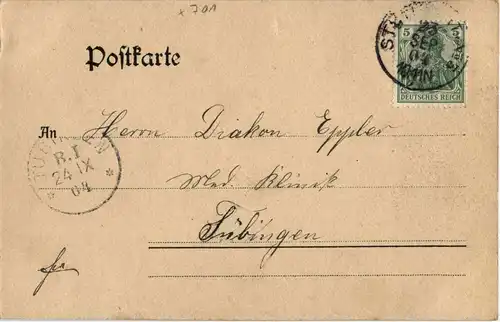 x 701
Postkarte
5 5
DEUTSCHES REICH
23
SEP
04
An Herrn Diakon Eppler
Med. Klinik
Tübingen
TÜBINGEN
R.I
24 IX
04